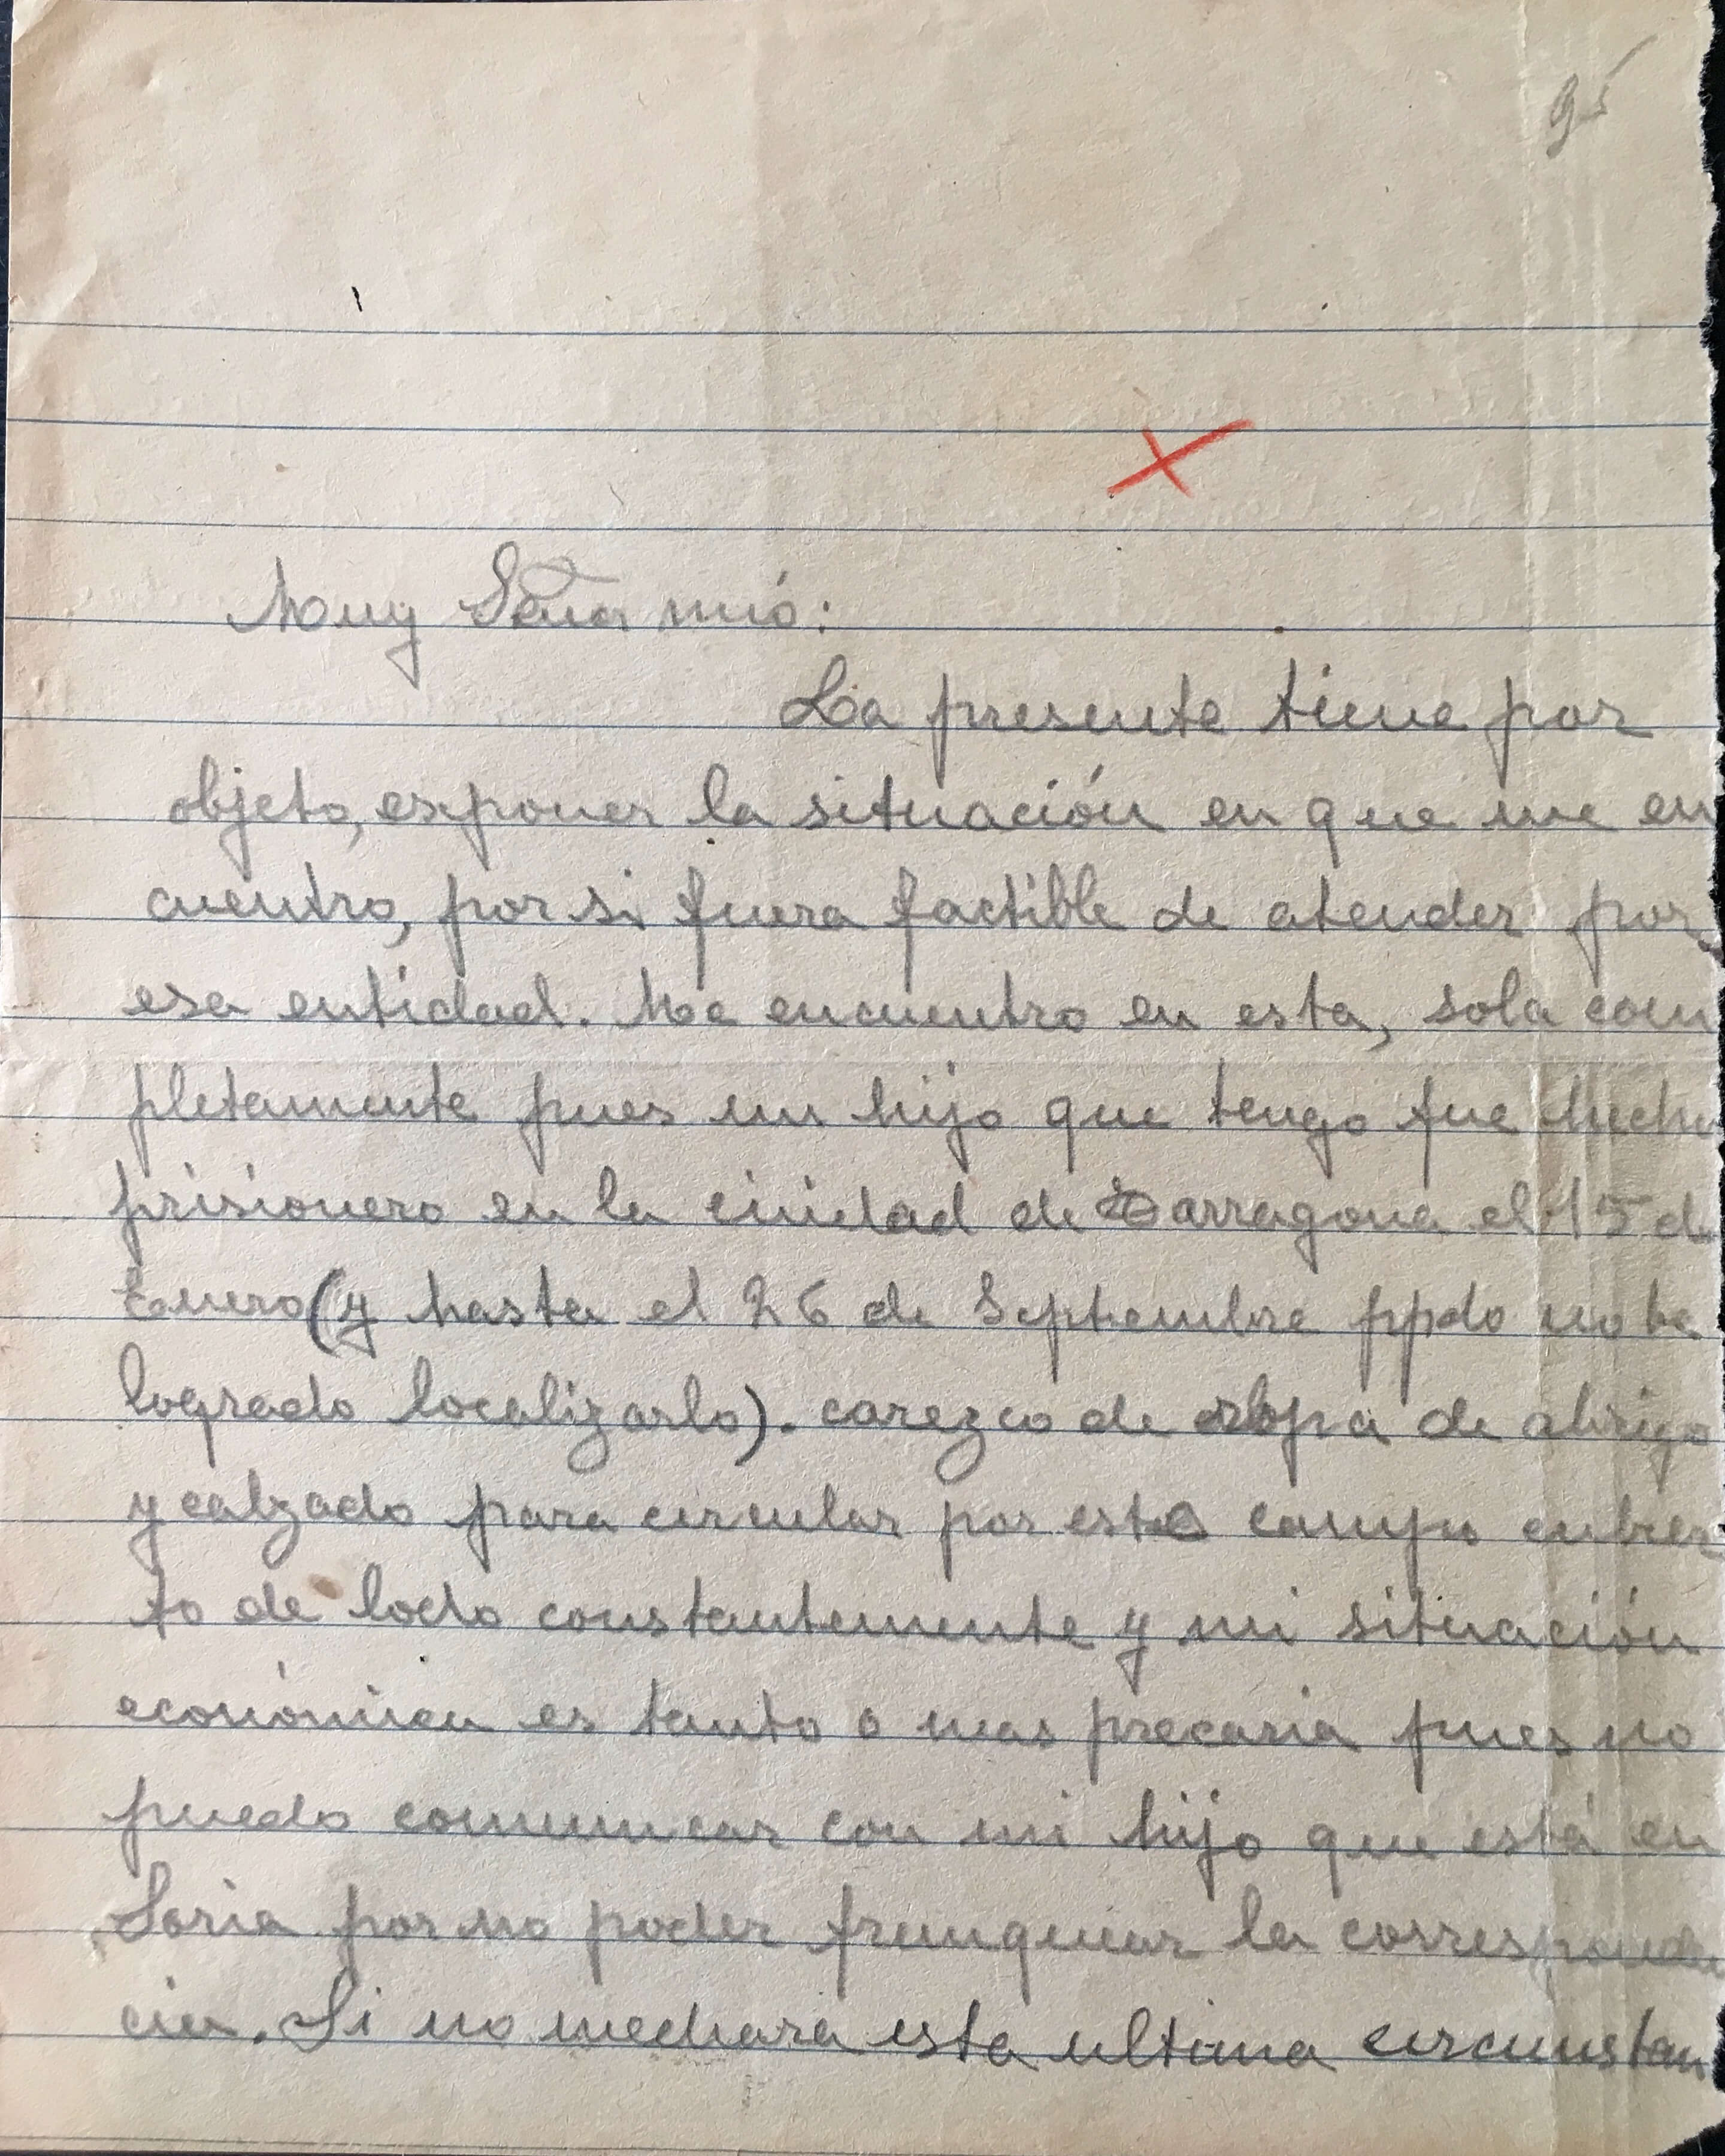 95
Muy Señor mió:
La presente tiene por
objeto, esponer la situación en que me en
cuentro, por si fuera factible de atender por
esa entidad. Me encuentro en esta, sola com
pletamente pues un hijo que tengo fue hecho
prisionero en la ciudad de Tarragona el 15 de
Enero (y hasta el 26 de Septiembre ppdo no he
logrado localizarlo). carezco de ropa de abrigo
y calzado para circular por este campo cubier
to de lodo constantemente y mi situación
económica es tanto o mas precaria pues no
puedo comunicar con mi hijo que está en
Soria por no poder franquear la corresponden
cia. Si no mediara esta ultima circunstan